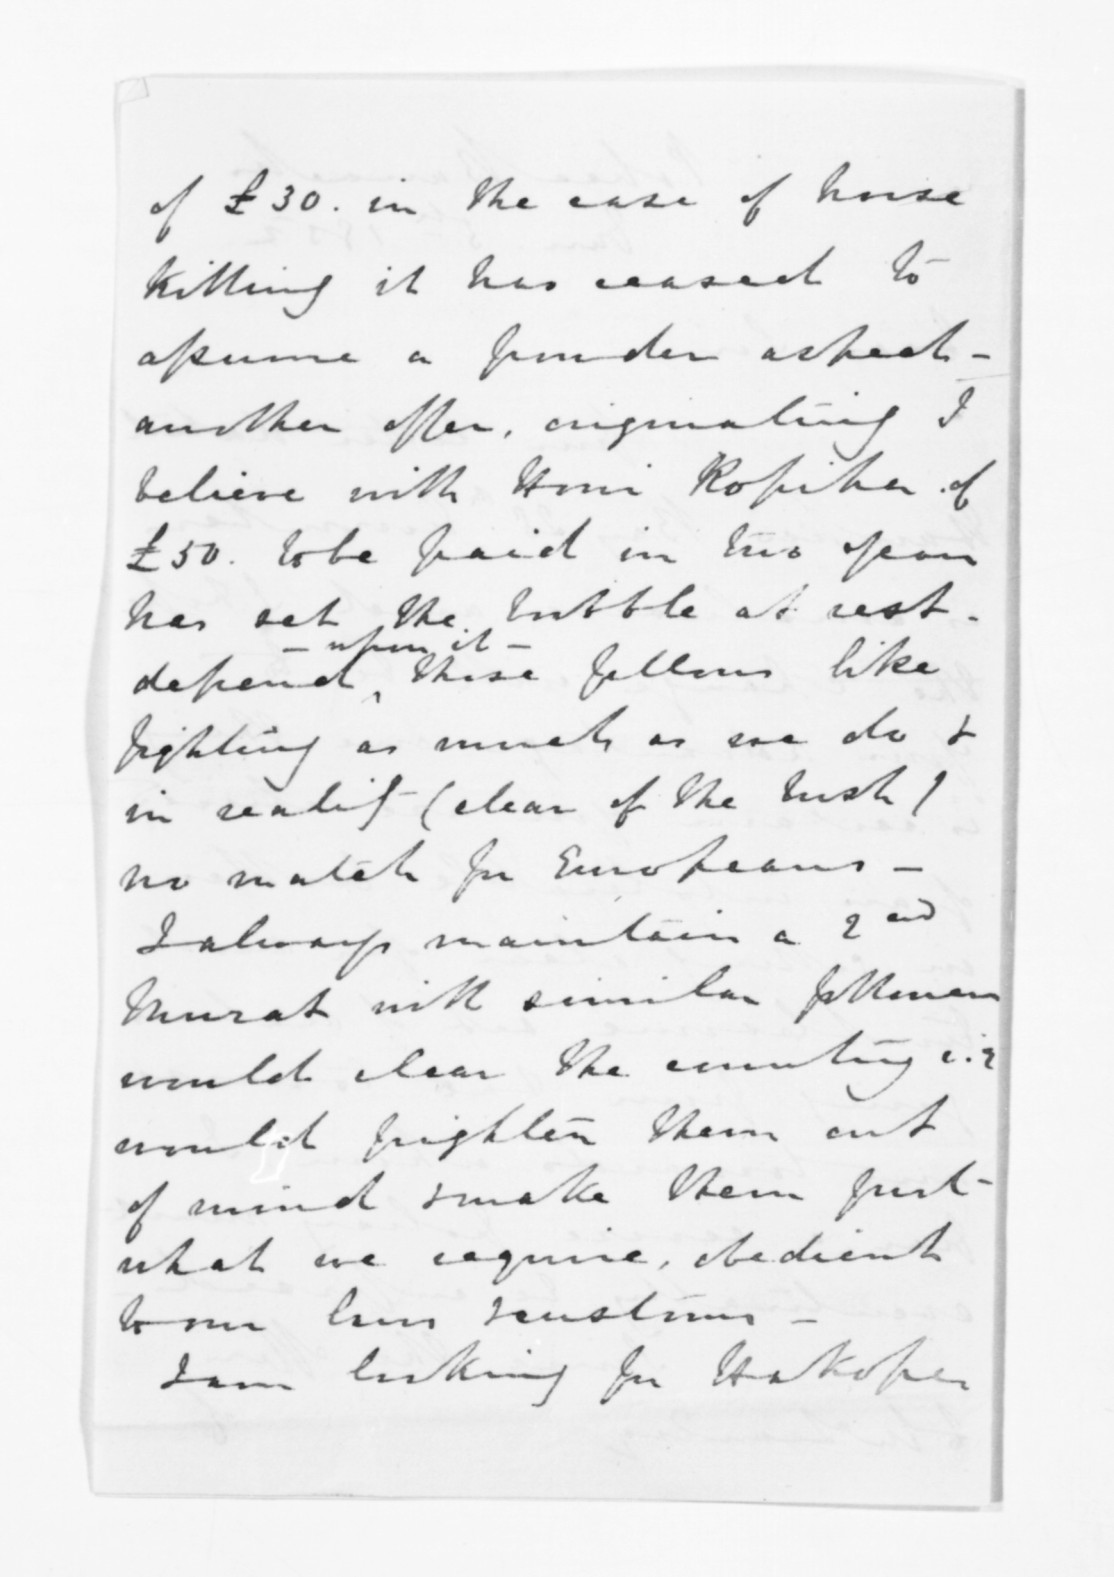 of £30. in the case of horse
killing it has ceased to
assume a powder aspect -
another offer, originating I
believe with Honi Ropiha of
£50. to be paid in two years
has set the bubble at rest.
- upon it -
depend these fellows like
fighting as much as we do &
in reality (clear of the bush)
no match for Europeans -
I always maintain a 2nd
Murat with similar followers
would clear the country i.e
would frighten them out
of mind & make them just
what we require, obedient
to our laws & customs -
I am looking for Hakopa